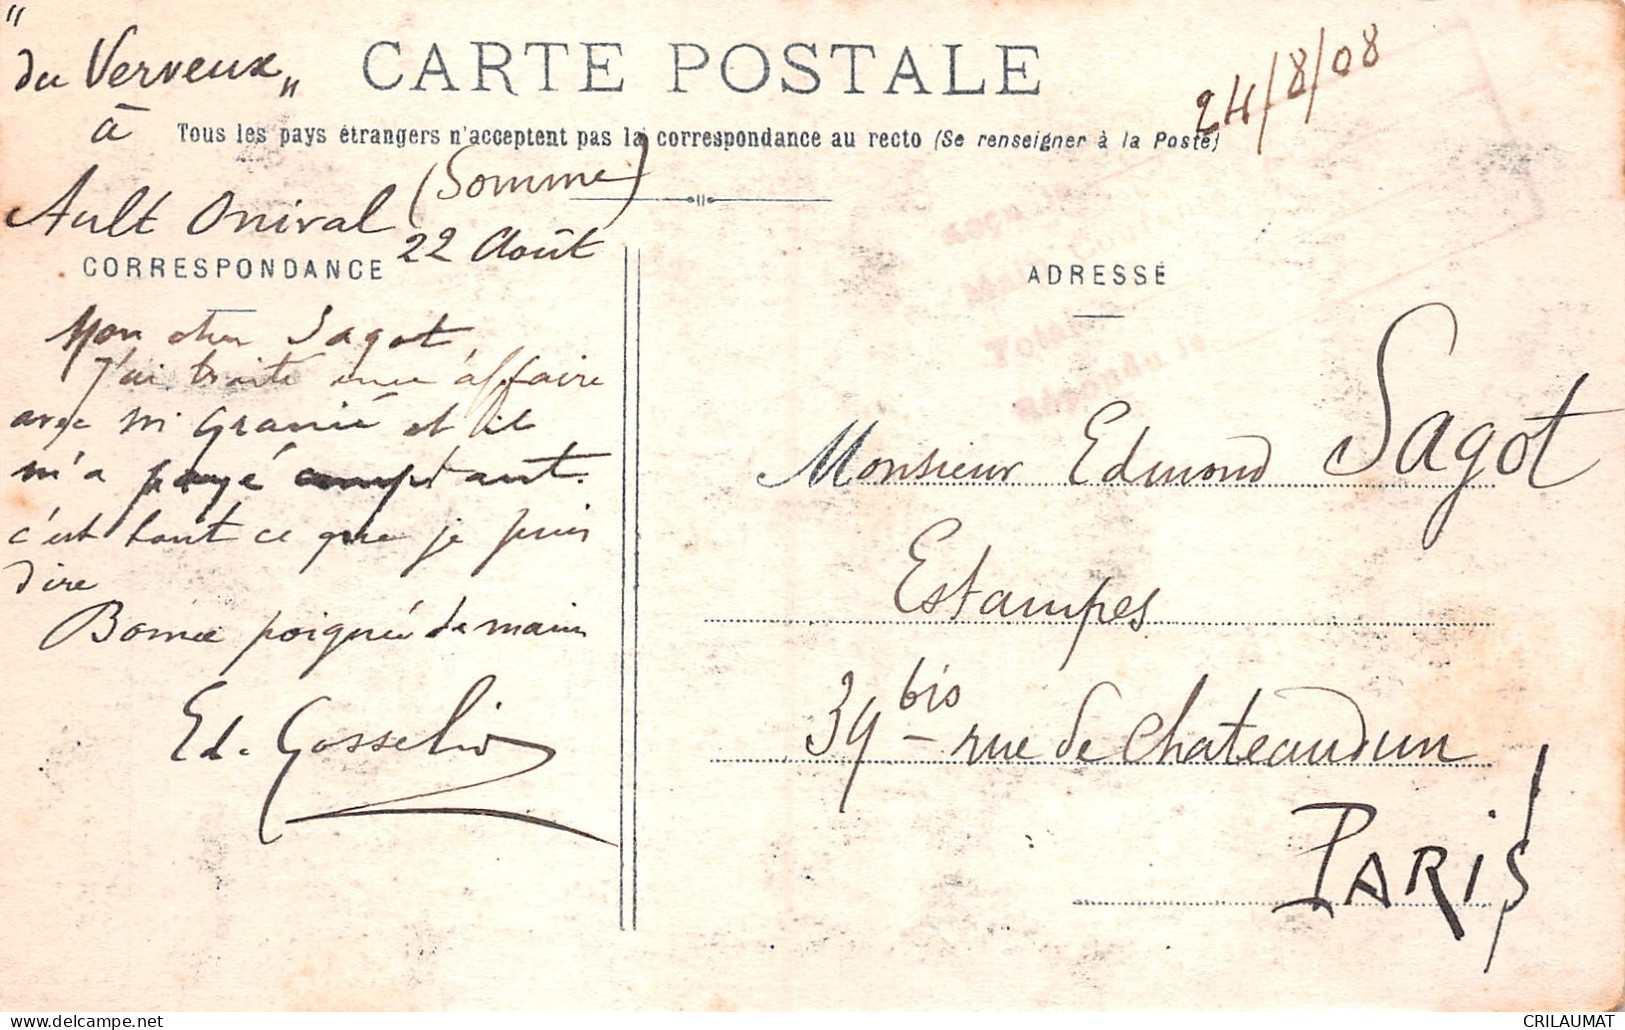 "
du Verveux"
à
CARTE POSTALE
24/8/08
Tous les pays étrangers n'acceptent pas la correspondance au recto (Se renseigner à la Poste)
Ault Onival (Somme)
22 Août
CORRESPONDANCE
Mon cher Sagot
J'ai traité une affaire
avec M Granié et il
m'a payé comptant.
c'est tout ce que je puis
dire
Bonne poignée de main
Ed. Gosselin
Reçu le
Répondu le
ADRESSE
Monsieur Edmond Sagot
Estampes
39 bis - rue de Chateaudun
PARIS
CRILAUMAT